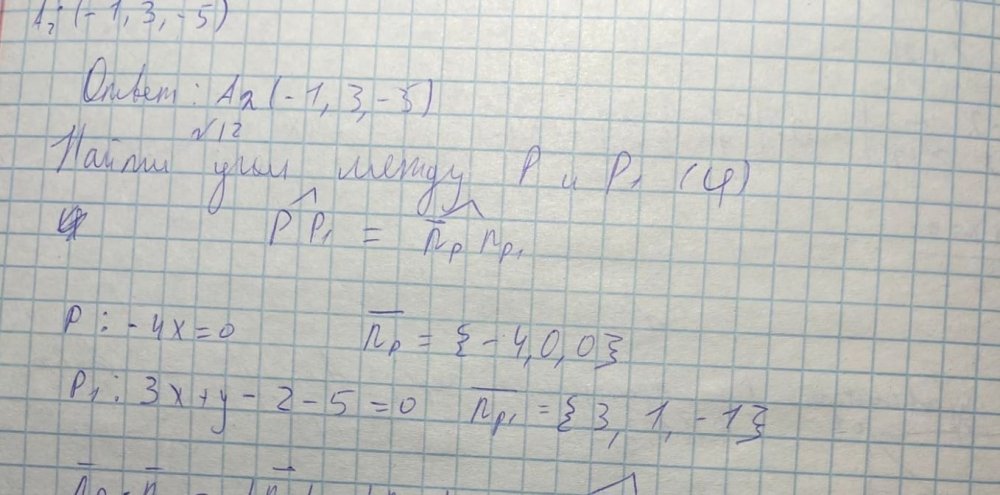 A₂(-1, 3, -5)
Ответ: A₂(-1, 3, -5)
№12
Найти угол между P и P₁ (φ)
P P₁ = n̅ₚ nₚ₁
P: -4x=0 n̅ₚ = {-4, 0, 0}
P₁: 3x+y-z-5=0 n̅ₚ₁ = {3, 1, -1}